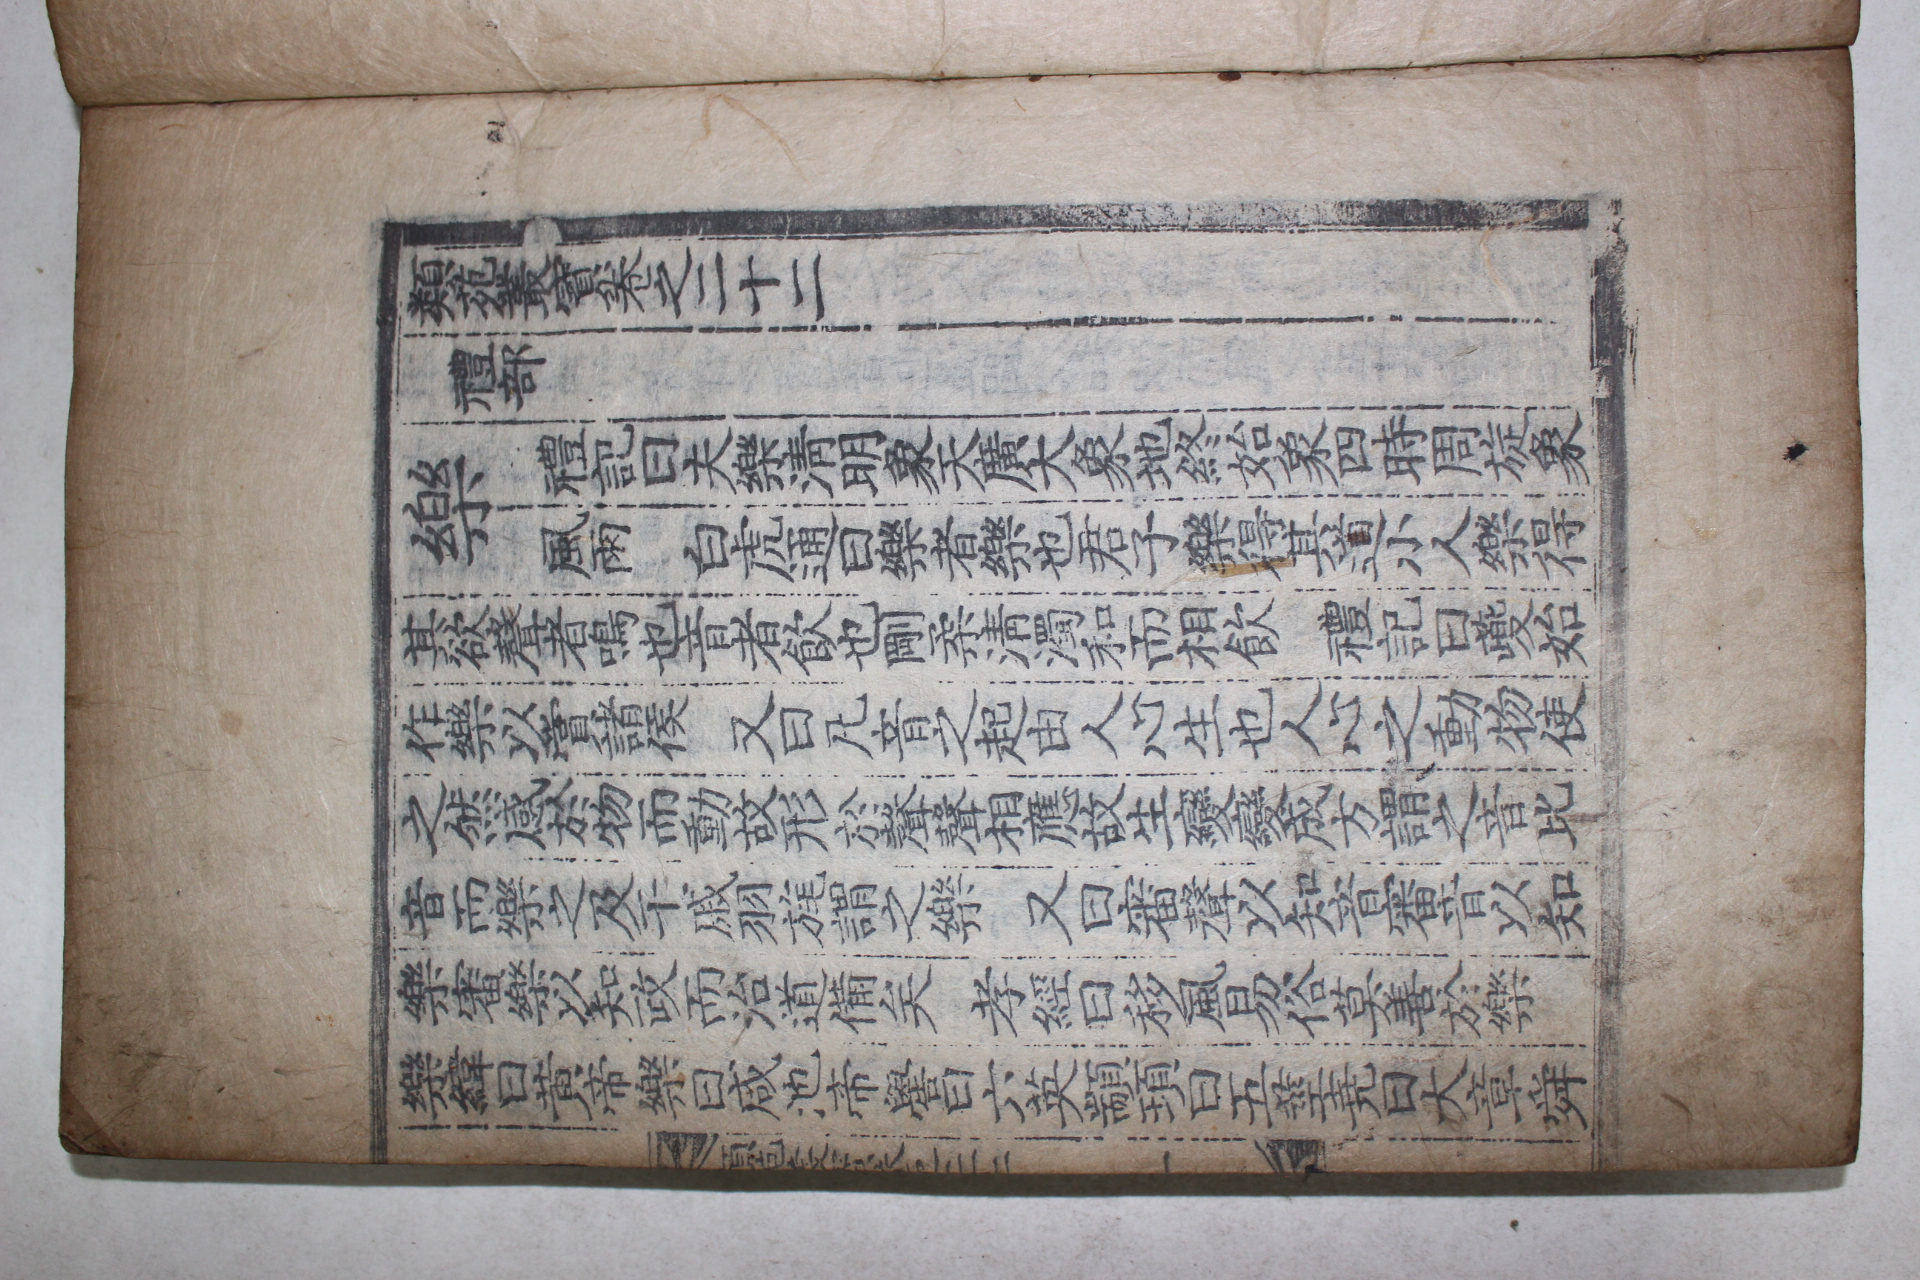 類苑叢寶卷之二十二
禮部
樂 禮記曰夫樂淸明象天廣大象地終始象四時周旋象
風雨 白虎通曰樂者樂也君子樂得其道小人樂得
其欲聲者鳴也音者飮也剛柔淸濁和而相飮 禮記曰夔始
作樂以賞諸侯 又曰凡音之起由人心生也人心之動物使
之然感於物而動故形於聲聲相應故生變變成方謂之音比
音而樂之及干戚羽旄謂之樂 又曰審聲以知音審音以知
樂審樂以知政而治道備矣 孝經曰移風易俗莫善於樂
樂緯曰黃帝樂曰咸池帝嚳曰六英顓頊曰五莖堯曰大章舜
類苑叢寶卷之二十二 一